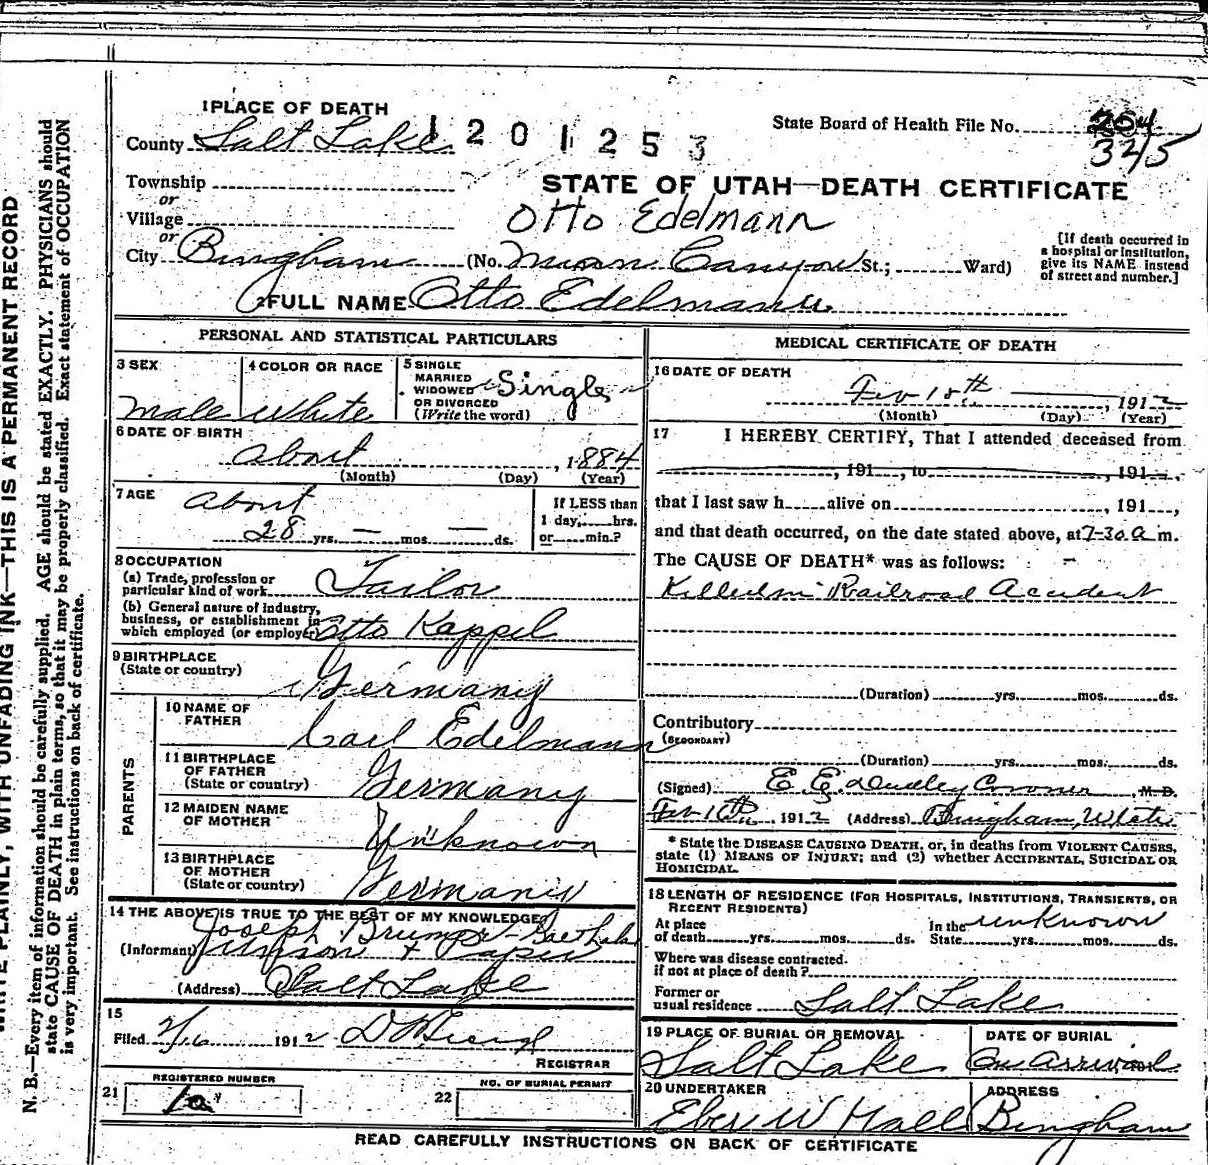 1 PLACE OF DEATH
County Salt Lake
1201253
State Board of Health File No.
204
325
Township
or
Village
or
City Bingham
STATE OF UTAH—DEATH CERTIFICATE
Otto Edelmann
(No. Main Canyon St.; Ward)
[If death occurred in
a hospital or institution,
give its NAME instead
of street and number.]
2 FULL NAME Otto Edelmann
PERSONAL AND STATISTICAL PARTICULARS
3 SEX
male
4 COLOR OR RACE
White
5 SINGLE
MARRIED
WIDOWED
OR DIVORCED
(Write the word)
Single
6 DATE OF BIRTH
about , 1884
(Month) (Day) (Year)
7 AGE
about
28 yrs. — mos. — ds.
If LESS than
1 day, hrs.
or min.?
8 OCCUPATION
(a) Trade, profession or
particular kind of work Tailor
(b) General nature of industry,
business, or establishment in
which employed (or employer) Otto Kappel
9 BIRTHPLACE
(State or country) Germany
PARENTS
10 NAME OF
FATHER Carl Edelmann
11 BIRTHPLACE
OF FATHER
(State or country) Germany
12 MAIDEN NAME
OF MOTHER Unknown
13 BIRTHPLACE
OF MOTHER
(State or country) Germany
14 THE ABOVE IS TRUE TO THE BEST OF MY KNOWLEDGE
Joseph
(Informant)
(Address) Salt Lake
15
Filed 2/16 1912
REGISTRAR
21 REGISTERED NUMBER
22 NO. OF BURIAL PERMIT
MEDICAL CERTIFICATE OF DEATH
16 DATE OF DEATH
Feb 15th , 1912
(Month) (Day) (Year)
17 I HEREBY CERTIFY, That I attended deceased from
, 191 , to , 191 ,
that I last saw h alive on , 191 ,
and that death occurred, on the date stated above, at 7-30 a m.
The CAUSE OF DEATH* was as follows:
Killed in Railroad Accident
(Duration) yrs. mos. ds.
Contributory
(SECONDARY)
(Duration) yrs. mos. ds.
(Signed) E. E. Dudley Coroner , M.D.
Feb 16th , 1912 (Address) Bingham, Utah
* State the DISEASE CAUSING DEATH, or, in deaths from VIOLENT CAUSES,
state (1) MEANS OF INJURY; and (2) whether ACCIDENTAL, SUICIDAL OR
HOMICIDAL.
18 LENGTH OF RESIDENCE (FOR HOSPITALS, INSTITUTIONS, TRANSIENTS, OR
RECENT RESIDENTS)
At place
of death yrs. mos. ds.
In the
State yrs. mos. ds.
unknown
Where was disease contracted.
if not at place of death?
Former or
usual residence Salt Lake
19 PLACE OF BURIAL OR REMOVAL
Salt Lake
DATE OF BURIAL
On arrival
20 UNDERTAKER
Eber W Hall
ADDRESS
Bingham
READ CAREFULLY INSTRUCTIONS ON BACK OF CERTIFICATE
WRITE PLAINLY, WITH UNFADING INK—THIS IS A PERMANENT RECORD
N. B.—Every item of information should be carefully supplied. AGE should be stated EXACTLY. PHYSICIANS should
state CAUSE OF DEATH in plain terms, so that it may be properly classified. Exact statement of OCCUPATION
is very important. See instructions on back of certificate.